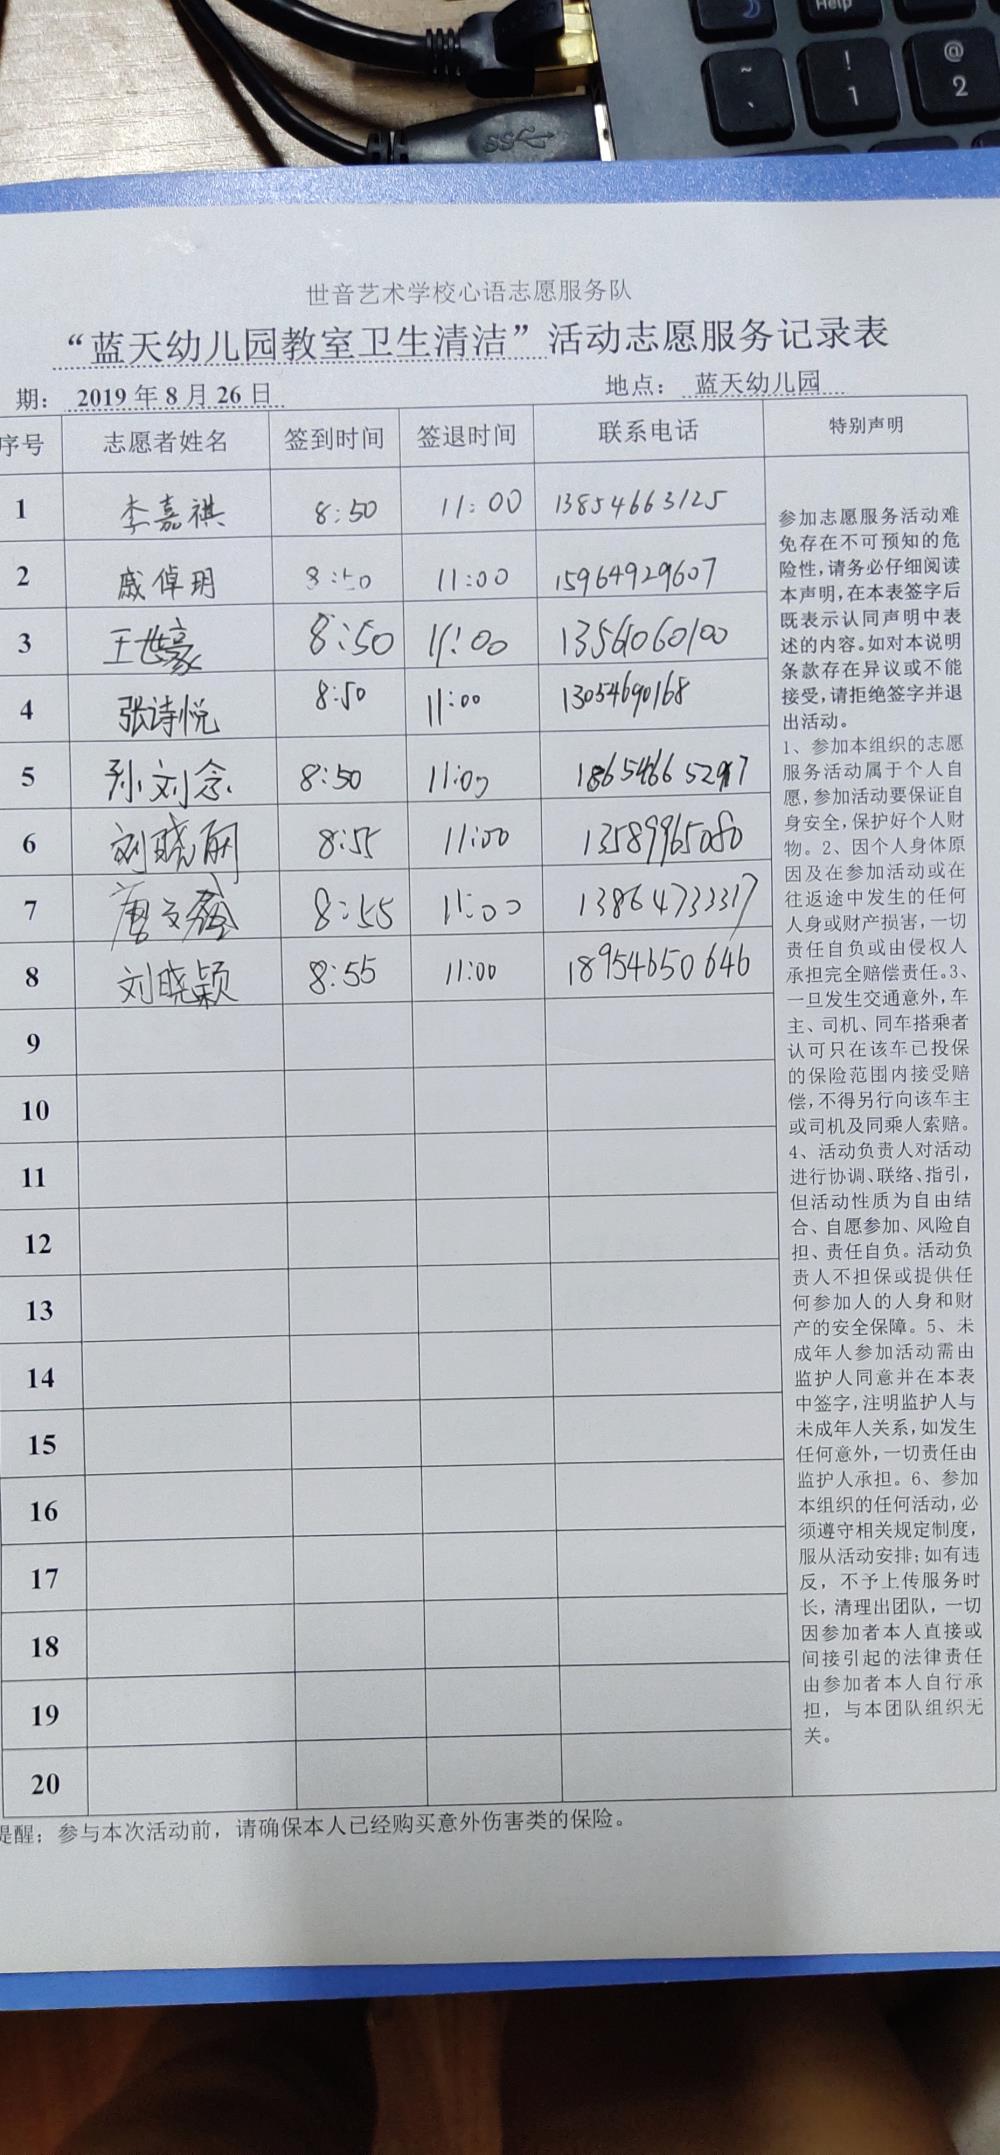 Help
~
、
!
1
@
2
世音艺术学校心语志愿服务队
“蓝天幼儿园教室卫生清洁”活动志愿服务记录表
期： 2019 年 8 月 26 日 地点： 蓝天幼儿园
序号 志愿者姓名 签到时间 签退时间 联系电话 特别声明
1 李嘉祺 8:50 11:00 13854663125
2 戚倬玥 8:50 11:00 15964929607
3 王世豪 8:50 11:00
4 张诗悦 8:50 11:00 13054690168
5 孙刘念 8:50 11:00
6 刘晓丽 8:55 11:00 13589965080
7 唐文鑫 8:55 11:00 13864733317
8 刘晓颖 8:55 11:00 18954650646
9
10
11
12
13
14
15
16
17
18
19
20
参加志愿服务活动难
免存在不可预知的危
险性,请务必仔细阅读
本声明,在本表签字后
既表示认同声明中表
述的内容。如对本说明
条款存在异议或不能
接受,请拒绝签字并退
出活动。
1、参加本组织的志愿
服务活动属于个人自
愿,参加活动要保证自
身安全,保护好个人财
物。2、因个人身体原
因及在参加活动或在
往返途中发生的任何
人身或财产损害,一切
责任自负或由侵权人
承担完全赔偿责任。3、
一旦发生交通意外,车
主、司机、同车搭乘者
认可只在该车已投保
的保险范围内接受赔
偿,不得另行向该车主
或司机及同乘人索赔。
4、活动负责人对活动
进行协调、联络、指引,
但活动性质为自由结
合、自愿参加、风险自
担、责任自负。活动负
责人不担保或提供任
何参加人的人身和财
产的安全保障。5、未
成年人参加活动需由
监护人同意并在本表
中签字,注明监护人与
未成年人关系,如发生
任何意外,一切责任由
监护人承担。6、参加
本组织的任何活动,必
须遵守相关规定制度,
服从活动安排;如有违
反，不予上传服务时
长,清理出团队,一切
因参加者本人直接或
间接引起的法律责任
由参加者本人自行承
担，与本团队组织无
关。
提醒；参与本次活动前，请确保本人已经购买意外伤害类的保险。